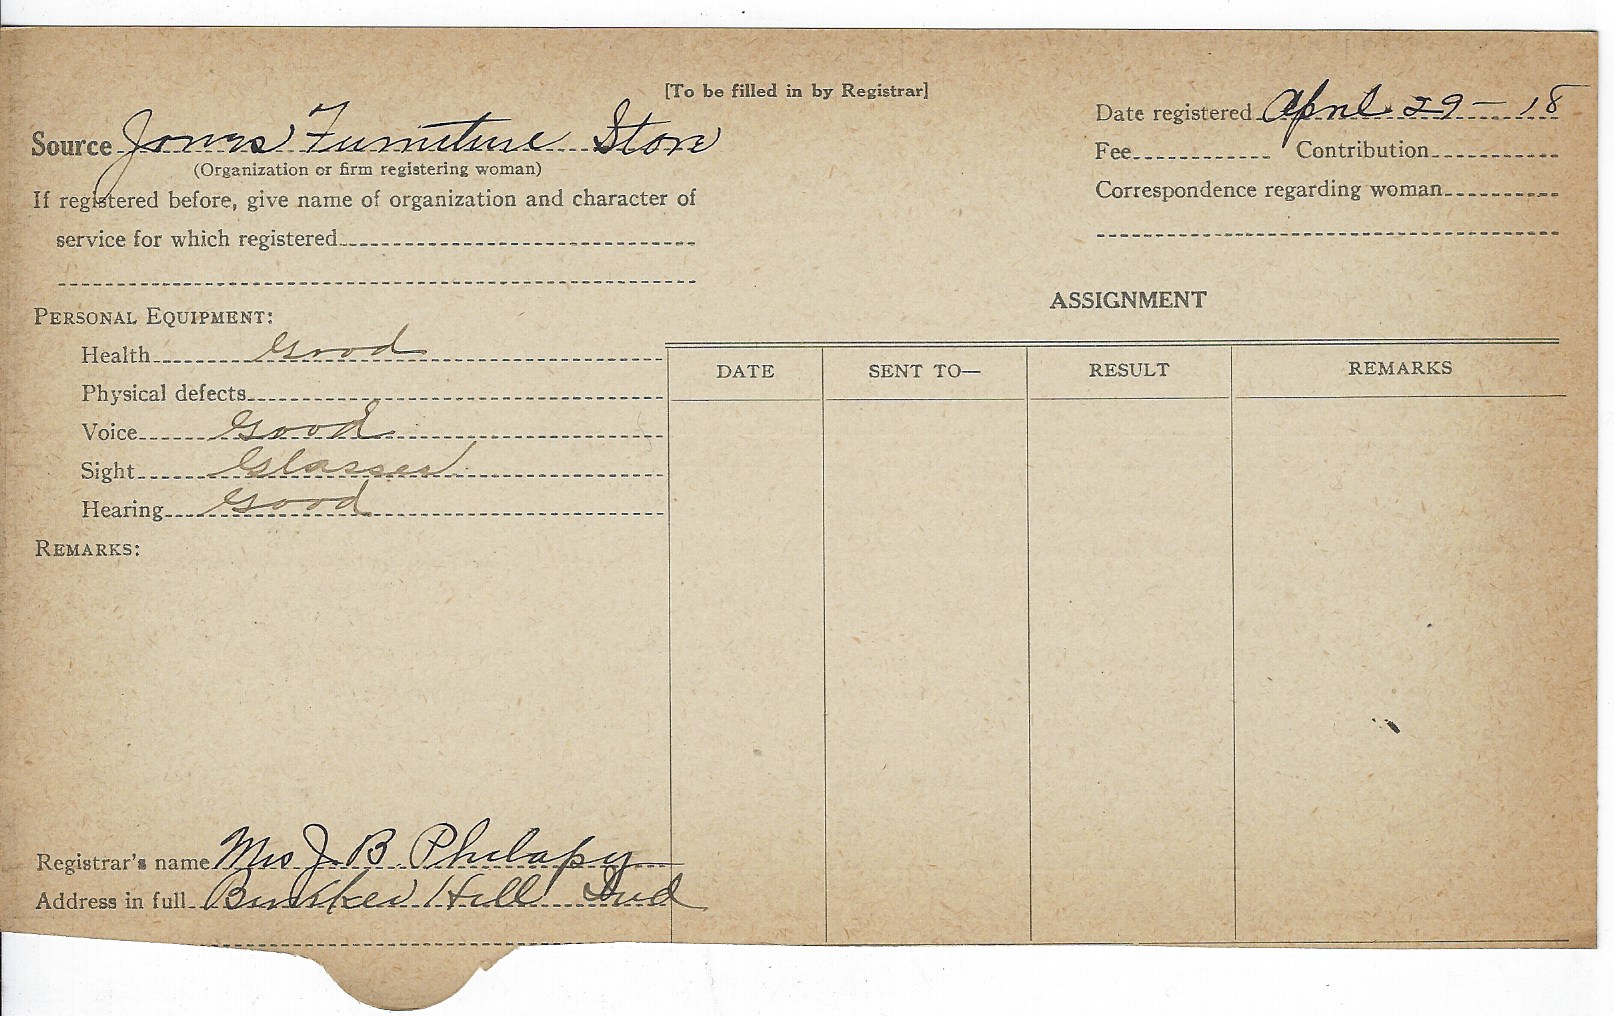 [To be filled in by Registrar]
Source Jones Furniture Store
(Organization or firm registering woman)
If registered before, give name of organization and character of
service for which registered
Date registered April 29-18
Fee Contribution
Correspondence regarding woman
PERSONAL EQUIPMENT:
Health Good
Physical defects
Voice Good
Sight Glasses
Hearing Good
REMARKS:
ASSIGNMENT
DATE SENT TO— RESULT REMARKS
Registrar's name Mrs J. B. Philapy
Address in full Bunker Hill Ind